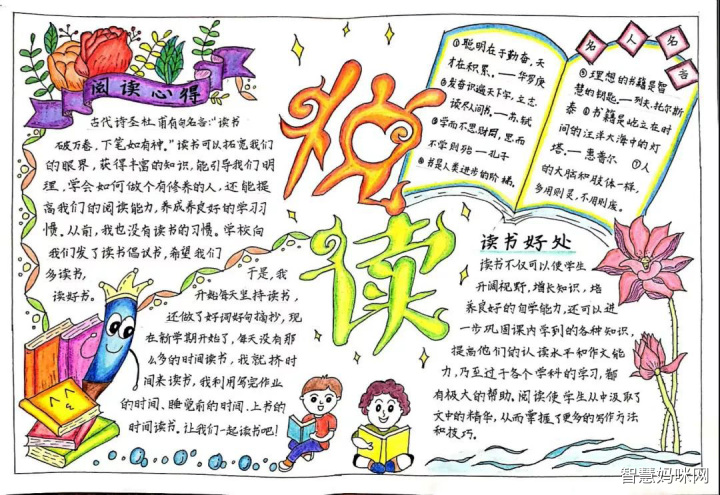 阅读心得
古代诗圣杜甫有句名言:"读书
破万卷,下笔如有神。"读书可以拓宽我们
的眼界,获得丰富的知识,能引导我们明
理,学会如何做个有修养的人,还能提
高我们的阅读能力,养成养良好的学习习
惯。从前,我也没有读书的习惯。学校向
我们发了读书倡议书,希望我们
多读书,
读好书。
于是,我
开始每天坚持读书,
还做了好词好句摘抄,现
在新学期开始了,每天没有那
么多的时间读书,我就挤时
间来读书,我利用写完作业
的时间、睡觉前的时间、上书的
时间读书。让我们一起读书吧!
悦
读
①聪明在于勤奋,天
才在积累。——华罗庚
②发奋识遍天下字,立志
读尽人间书。——苏轼
③学而不思则罔,思而
不学则殆——孔子
④书是人类进步的阶梯。
名人名告
⑤理想的书籍是智
慧的钥匙。——列夫.托尔斯
泰 ⑥书籍是屹立在时
间的汪洋大海中的灯
塔。——惠普尔 ⑦人
的大脑和肢体一样,
多用则灵,不用则废。
读书好处
读书不仅可以使学生
开阔视野,增长知识,培
养良好的自学能力,还可以进
一步巩固课内学到的各种知识,
提高他们的认读水平和作文能
力,乃至过于各个学科的学习,都
有极大的帮助。阅读使学生从中汲取了
文中的精华,从而掌握了更多的写作方法
和技巧。
智慧妈咪网